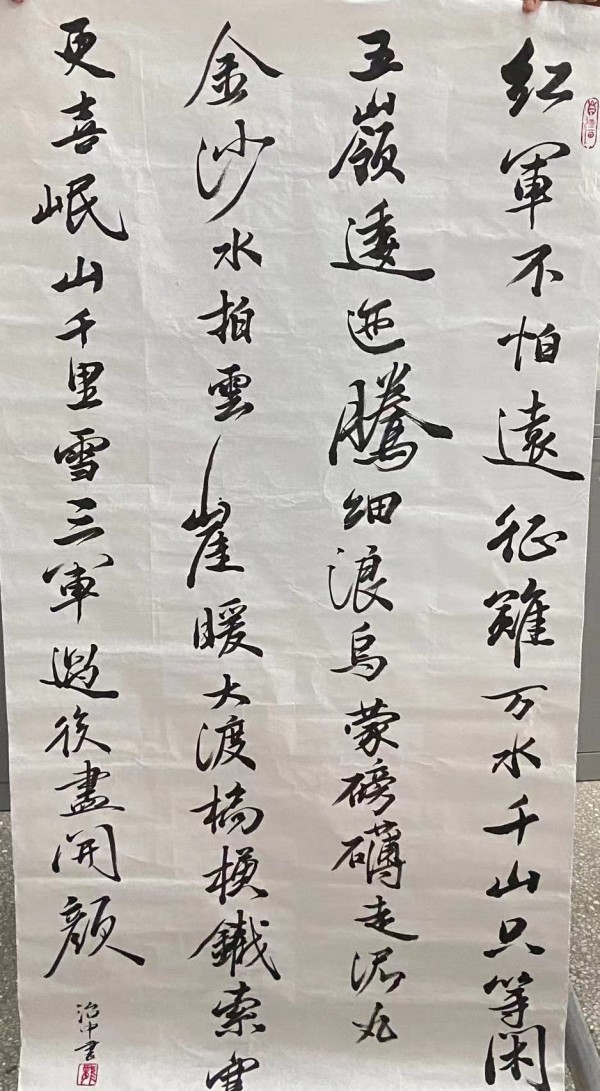 红軍不怕遠征難万水千山只等闲
五嶺逶迤騰细浪烏蒙磅礴走泥丸
金沙水拍雲崖暖大渡橋横鐵索寒
更喜岷山千里雪三軍過後盡開顔
治中書